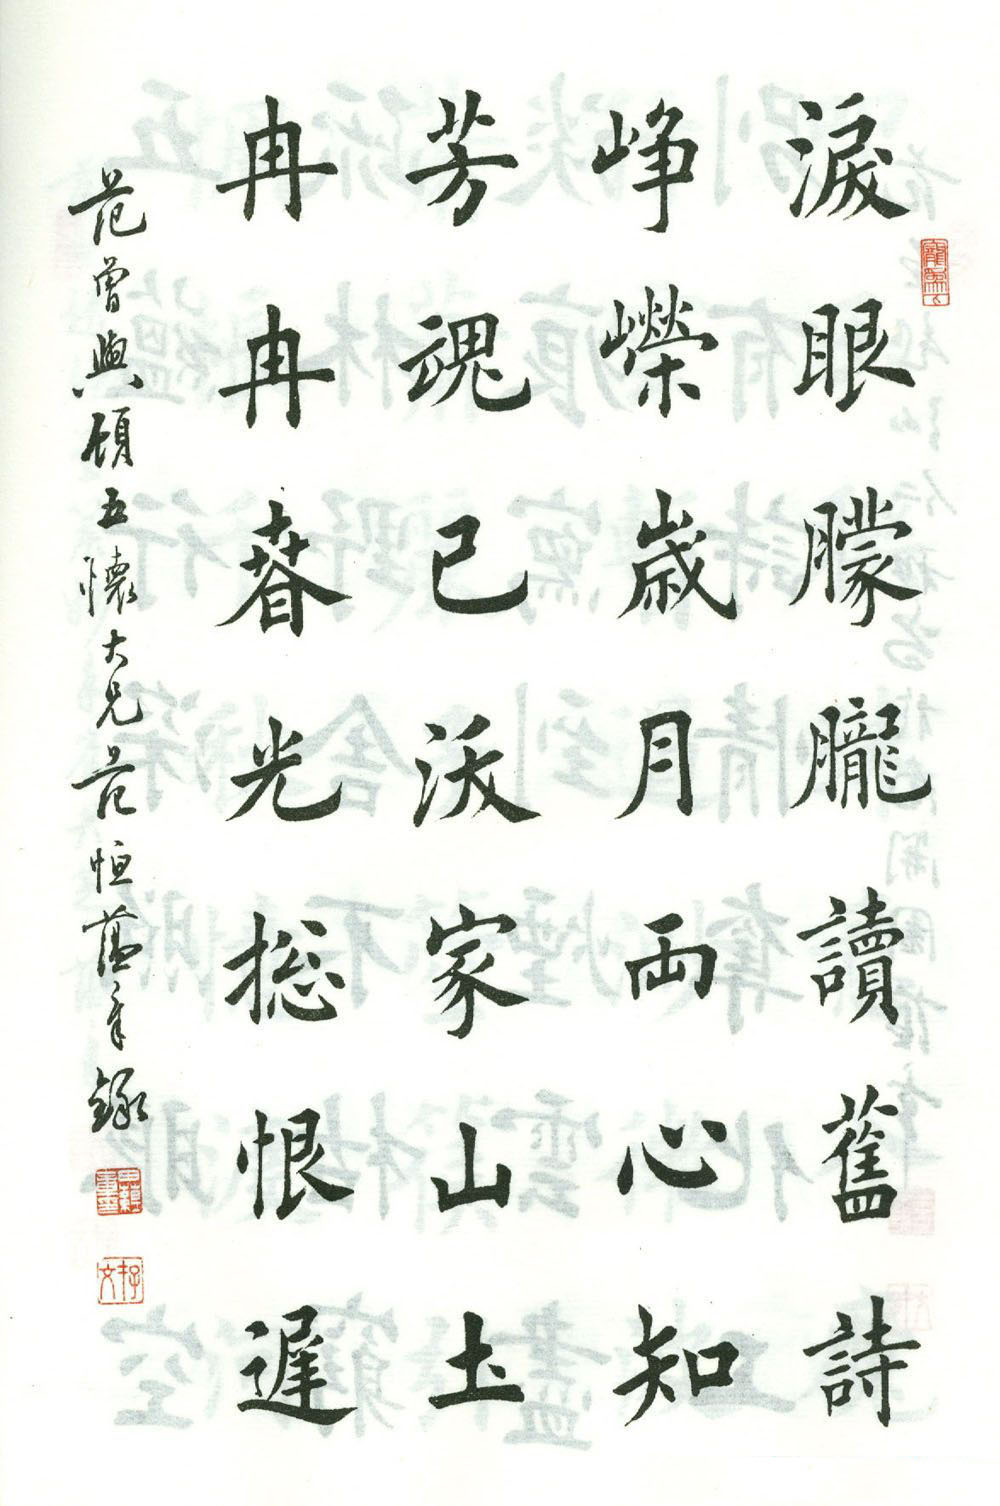 淚眼朦朧讀舊詩
崢嶸歲月兩心知
芳魂已沃家山土
冉冉春光總恨遲
范曾與頎五懷大兄范恒
錄